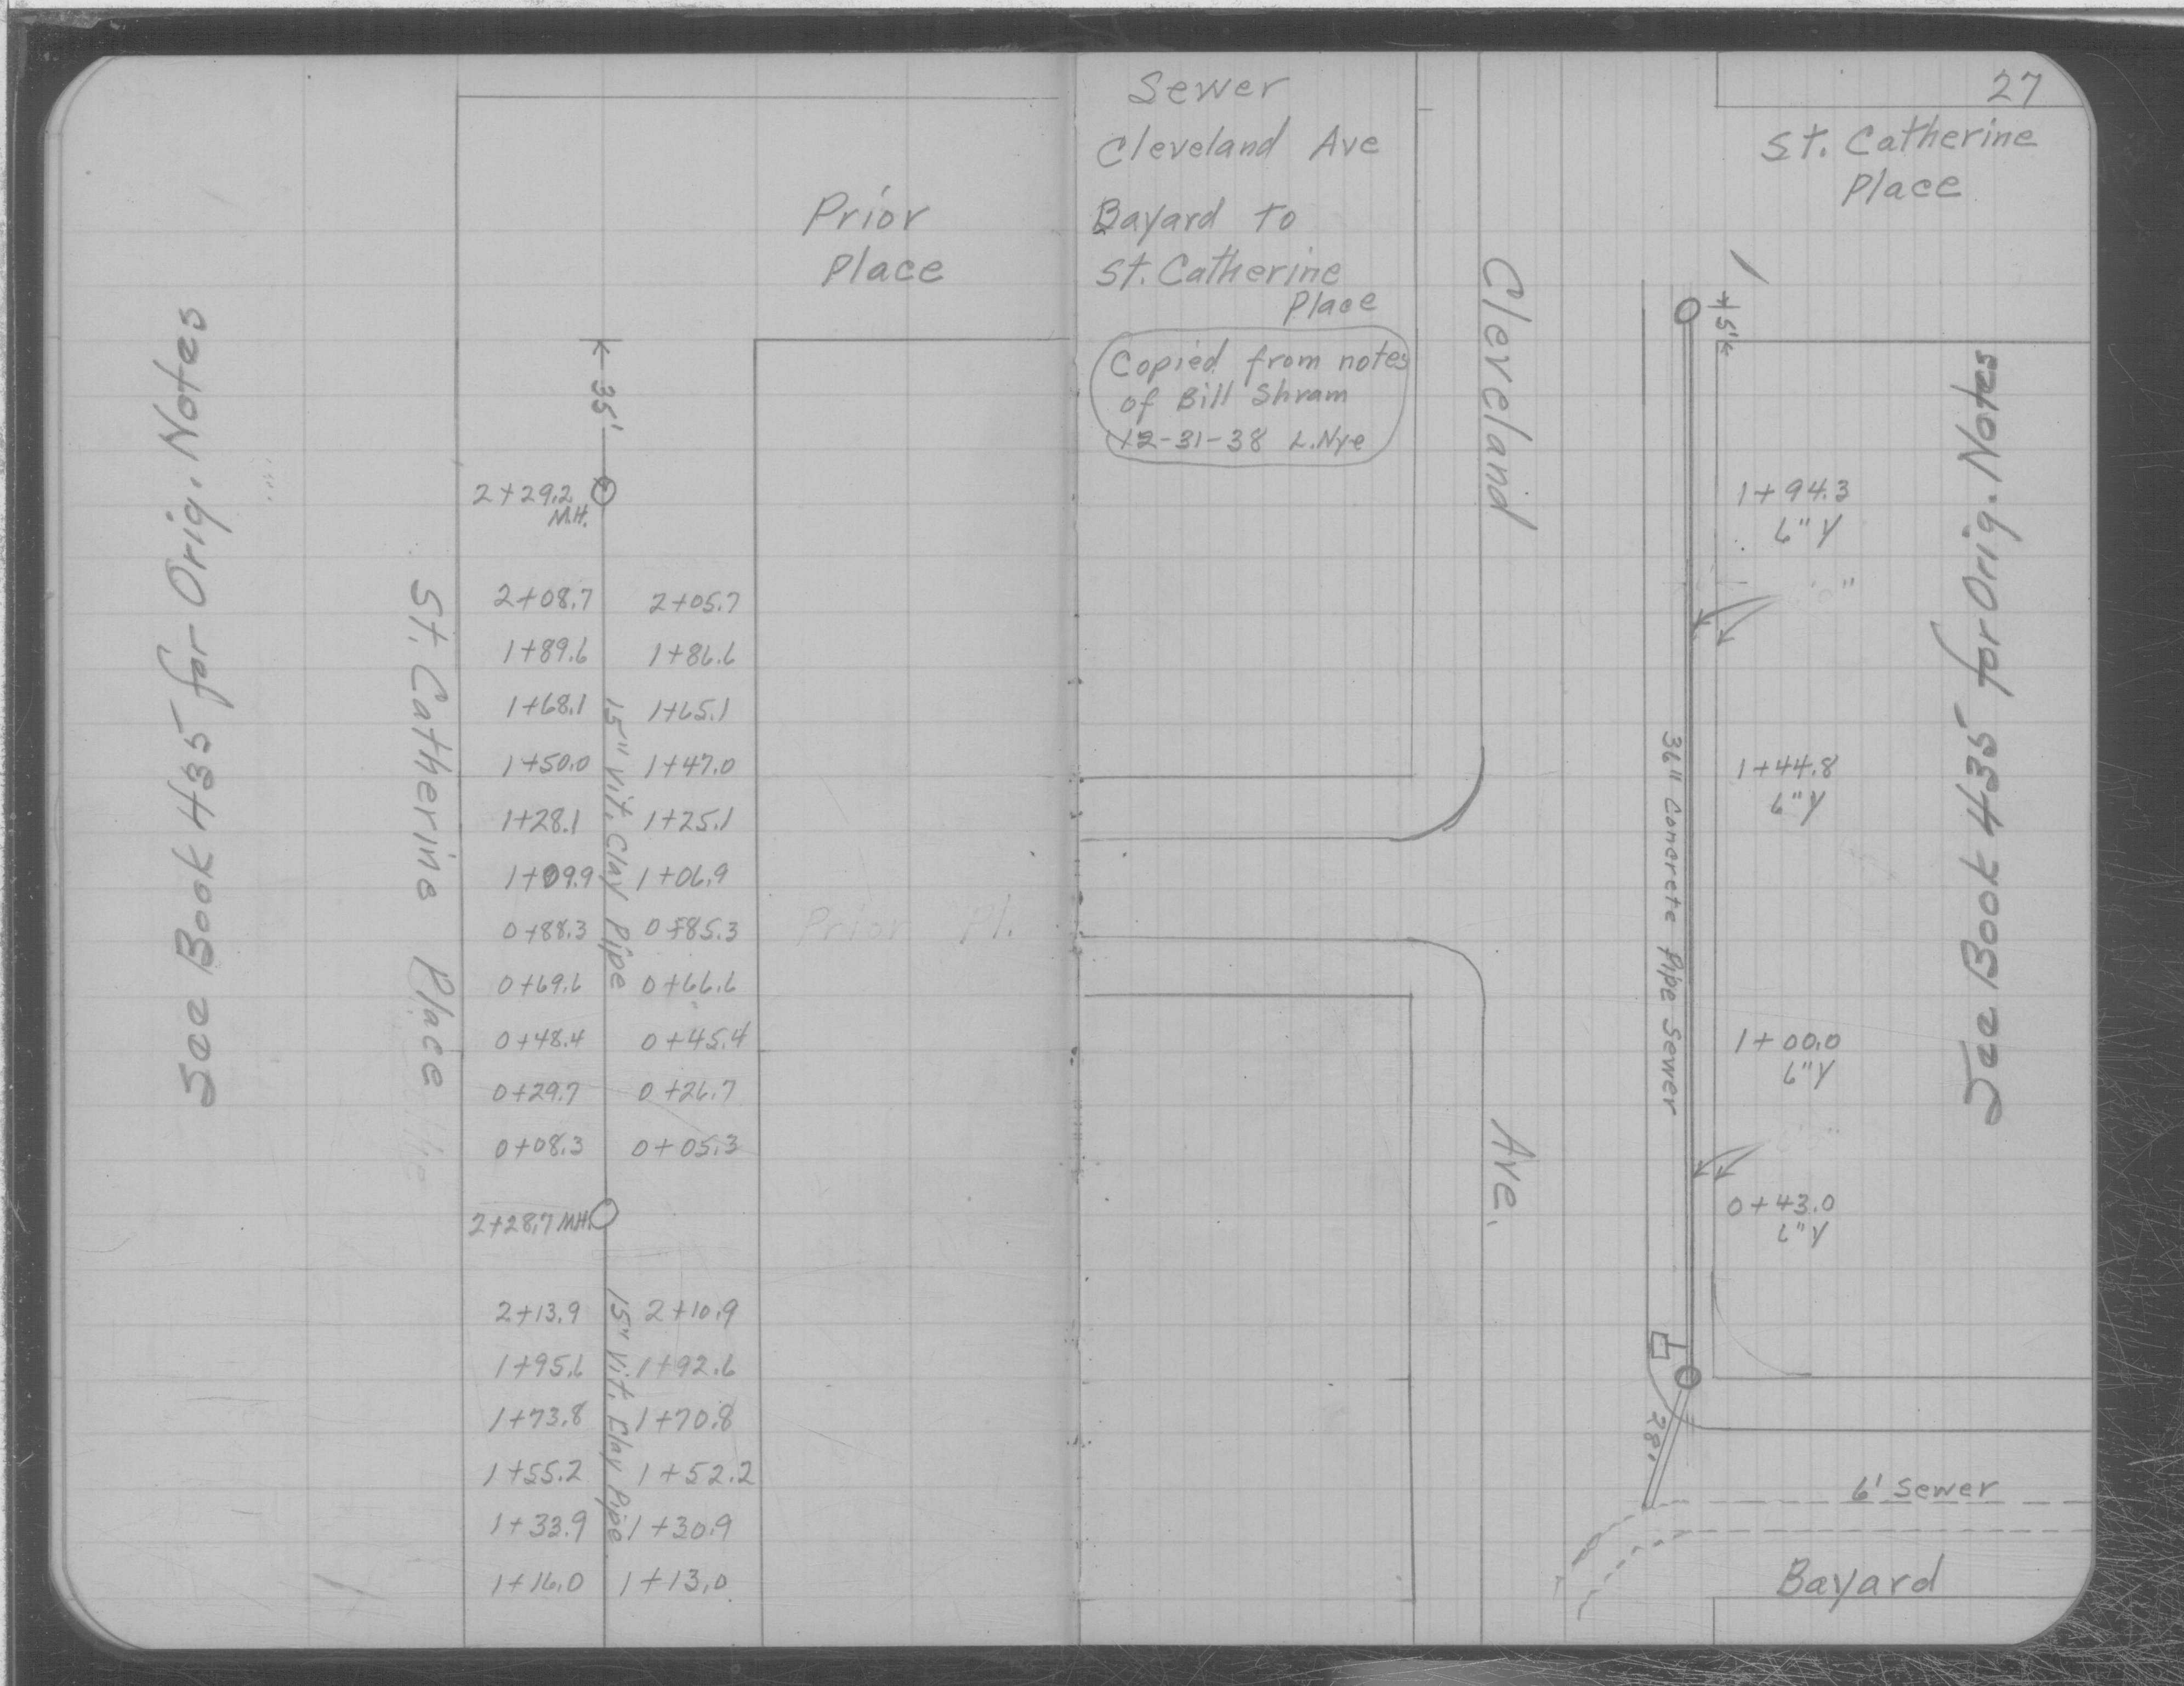 See Book 435 for Orig. Notes
St. Catherine Place
Prior
Place
35'
2+29.2
M.H.
2+08.7 2+05.7
1+89.6 1+86.6
1+68.1 1+65.1
1+50.0 1+47.0
1+28.1 1+25.1
1+09.9 1+06.9
0+88.3 0+85.3
0+69.6 0+66.6
0+48.4 0+45.4
0+29.7 0+26.7
0+08.3 0+05.3
15" Vit. Clay Pipe
Prior Pl.
2+28.7 M.H.
2+13.9 2+10.9
1+95.6 1+92.6
1+73.8 1+70.8
1+55.2 1+52.2
1+33.9 1+30.9
1+16.0 1+13.0
15" Vit. Clay Pipe
Sewer
Cleveland Ave
Bayard to
St. Catherine
Place
Copied from notes
of Bill Shram
12-31-38 L. Nye
Cleveland Ave.
27
St. Catherine
Place
5'
1+94.3
6" Y
1+44.8
6" Y
1+00.0
6" Y
0+43.0
6" Y
36" Concrete Pipe Sewer
28'
6' Sewer
Bayard
See Book 435 for Orig. Notes